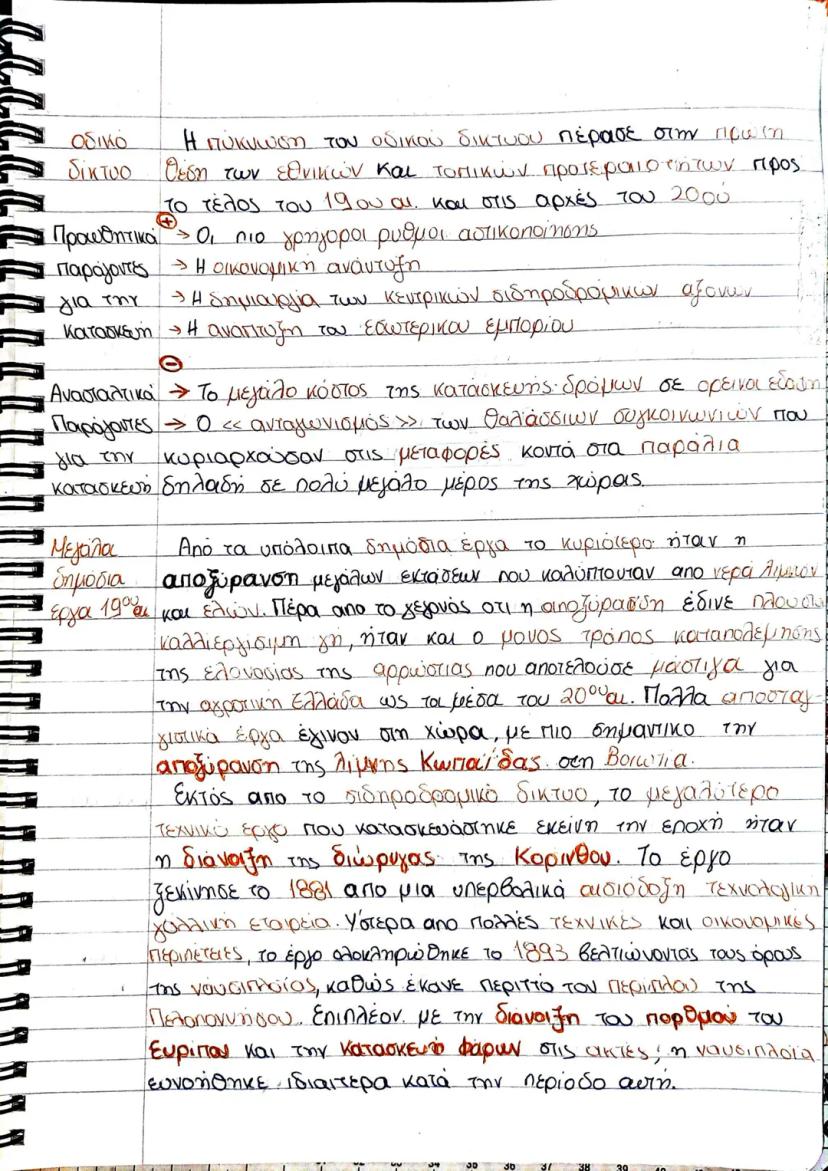 οδικό Η πύκνωση του οδικού δικτυου πέρασε στην πρώτη
δίκτυο θέση των εθνικών και τοπικών προτεραιοτήτων προς
το τέλος του 19ου αι. και στις αρχές του 20ού
⊕
Προωθητικά → Οι πιο γρήγοροι ρυθμοι αστικοποίησης
παράγοντες → Η οικονομική ανάπτυξη
για την → Η δημιουργία των κεντρικών σιδηροδρομικών αξόνων
κατασκευή → Η αναπτυξη του εσωτερικου εμποριου
⊖
Ανασταλτικά → Το μεγάλο κόστος της κατασκευής δρόμων σε ορεινα εδαφη
Παράγοντες → Ο << ανταγωνισμός >> των θαλάσσιων συγκοινωνιών που
για την κυριαρχούσαν στις μεταφορές κοντά στα παράλια
κατασκευή δηλαδή σε πολύ μεγάλο μέρος της χώρας.
Μεγάλα Από τα υπόλοιπα δημόδια έργα το κυριότερο ήταν η
δημόδια αποξύρανση μεγάλων εκτάσεων που καλύπτονταν απο νερά λιμνών
έργα 19ου αι και ελών. Πέρα απο το γεγονός οτι η αποξύραση έδινε πλουσια
καλλιεργίσιμη γή, ήταν και ο μονος τρόπος καταπολεμησης
της ελονοσίας της αρρώστιας που αποτελούσε μάστιγα για
την αγροτική Ελλάδα ως τα μέσα του 20ου αι. Πολλα αποσταγ-
γιστικά έργα έγινον στη χώρα, με πιο σημαντικο την
αποξύρανση της λίμνης Κωπαΐδας στη Βοιωτια.
Εκτός απο το σιδηροδρομικό δίκτυο, το μεγαλύτερο
τεχνικό έργο που κατασκευάστηκε εκείνη την εποχή ήταν
η διάνοιξη της διώρυγας της Κορίνθου. Το έργο
ξεκίνησε το 1881 απο μια υπερβολικά αισιόδοξη τεχνολογικη
γαλλική εταιρεία. Ύστερα απο πολλές τεχνικές και οικονομικές
περιπέτειες, το έργο ολοκληρώθηκε το 1893 βελτιώνοντας τους όρους
της ναυσιπλοΐας, καθώς έκανε περιττό τον περίπλου της
Πελοποννήσου. Επιπλέον με την διάνοιξη του πορθμού του
Ευρίπου και την κατασκευή φάρων στις ακτές, η ναυσιπλοΐα
ευνοήθηκε ιδιαιτερα κατά την περίοδο αυτή.